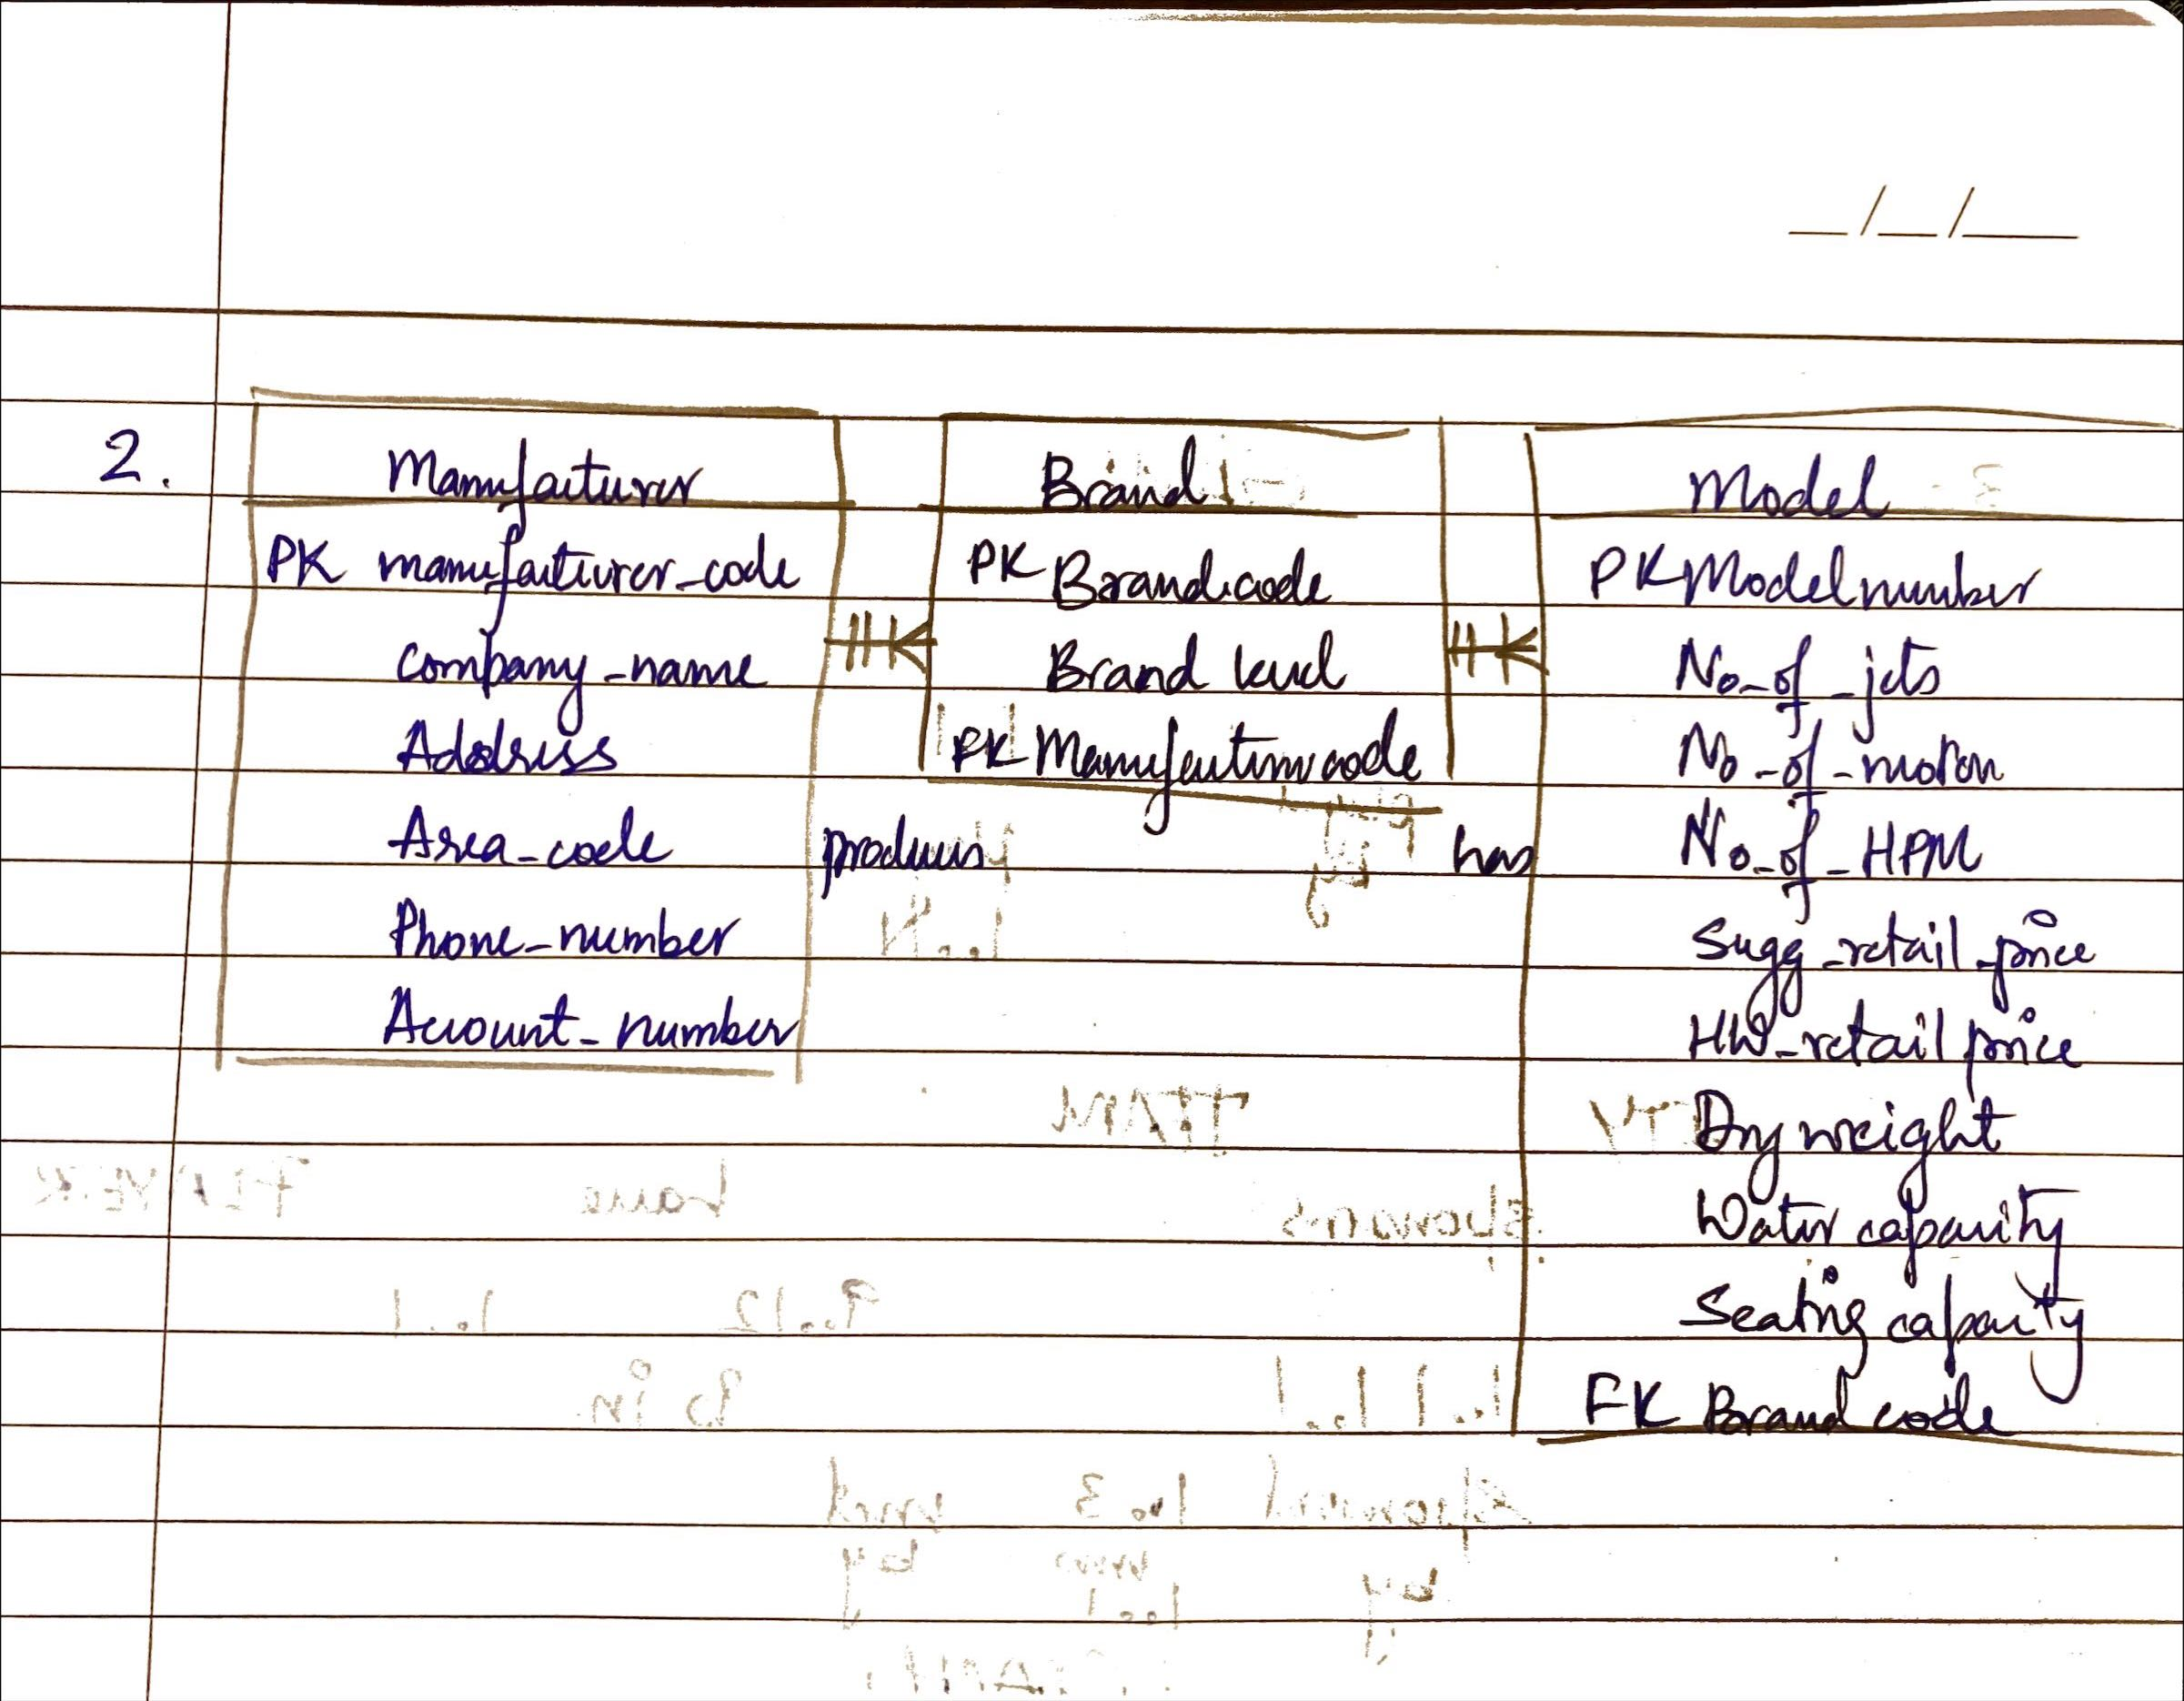 2.
Manufacturer
PK manufacturer_code
company_name
Address
Area_code
Phone_number
Account_number
produces
Brand
PK Brand code
Brand level
FK Manufacturer code
has
Model
PK Model number
No_of_jets
No_of_motors
No_of_HPM
Sugg_retail_price
HW_retail price
Dry weight
Water capacity
Seating capacity
FK Brand code